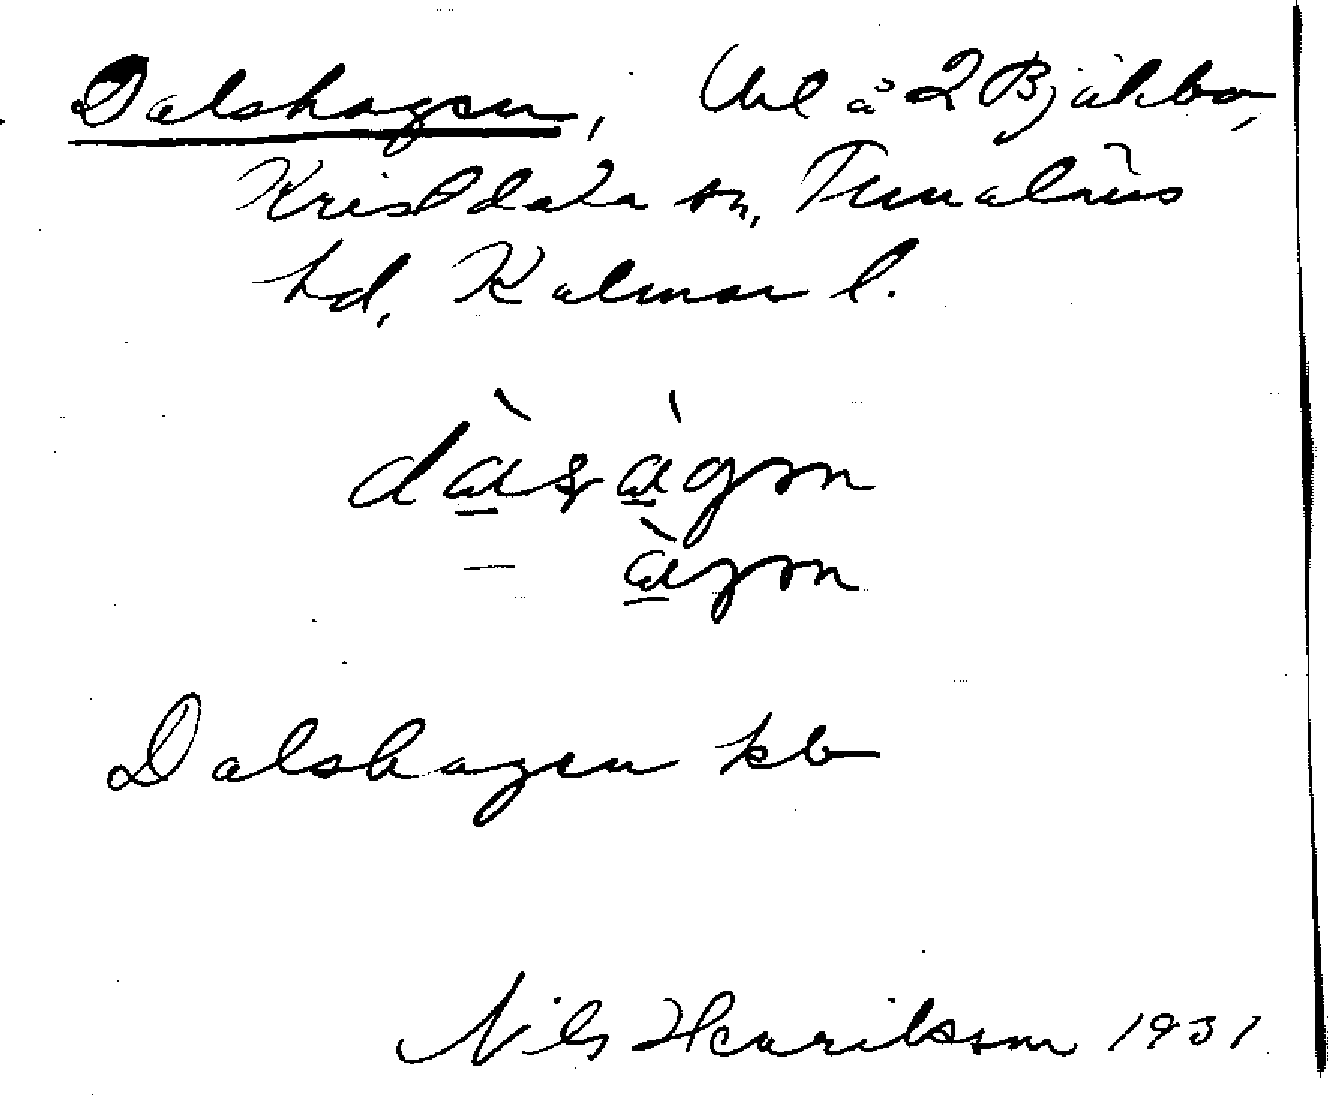 Dalshagen, Uvl å 2 Bjälebo,
Kristdala sn, Tunaläns
hd, Kalmar l.
Dalshagen kb
Nils Henrikson 1931